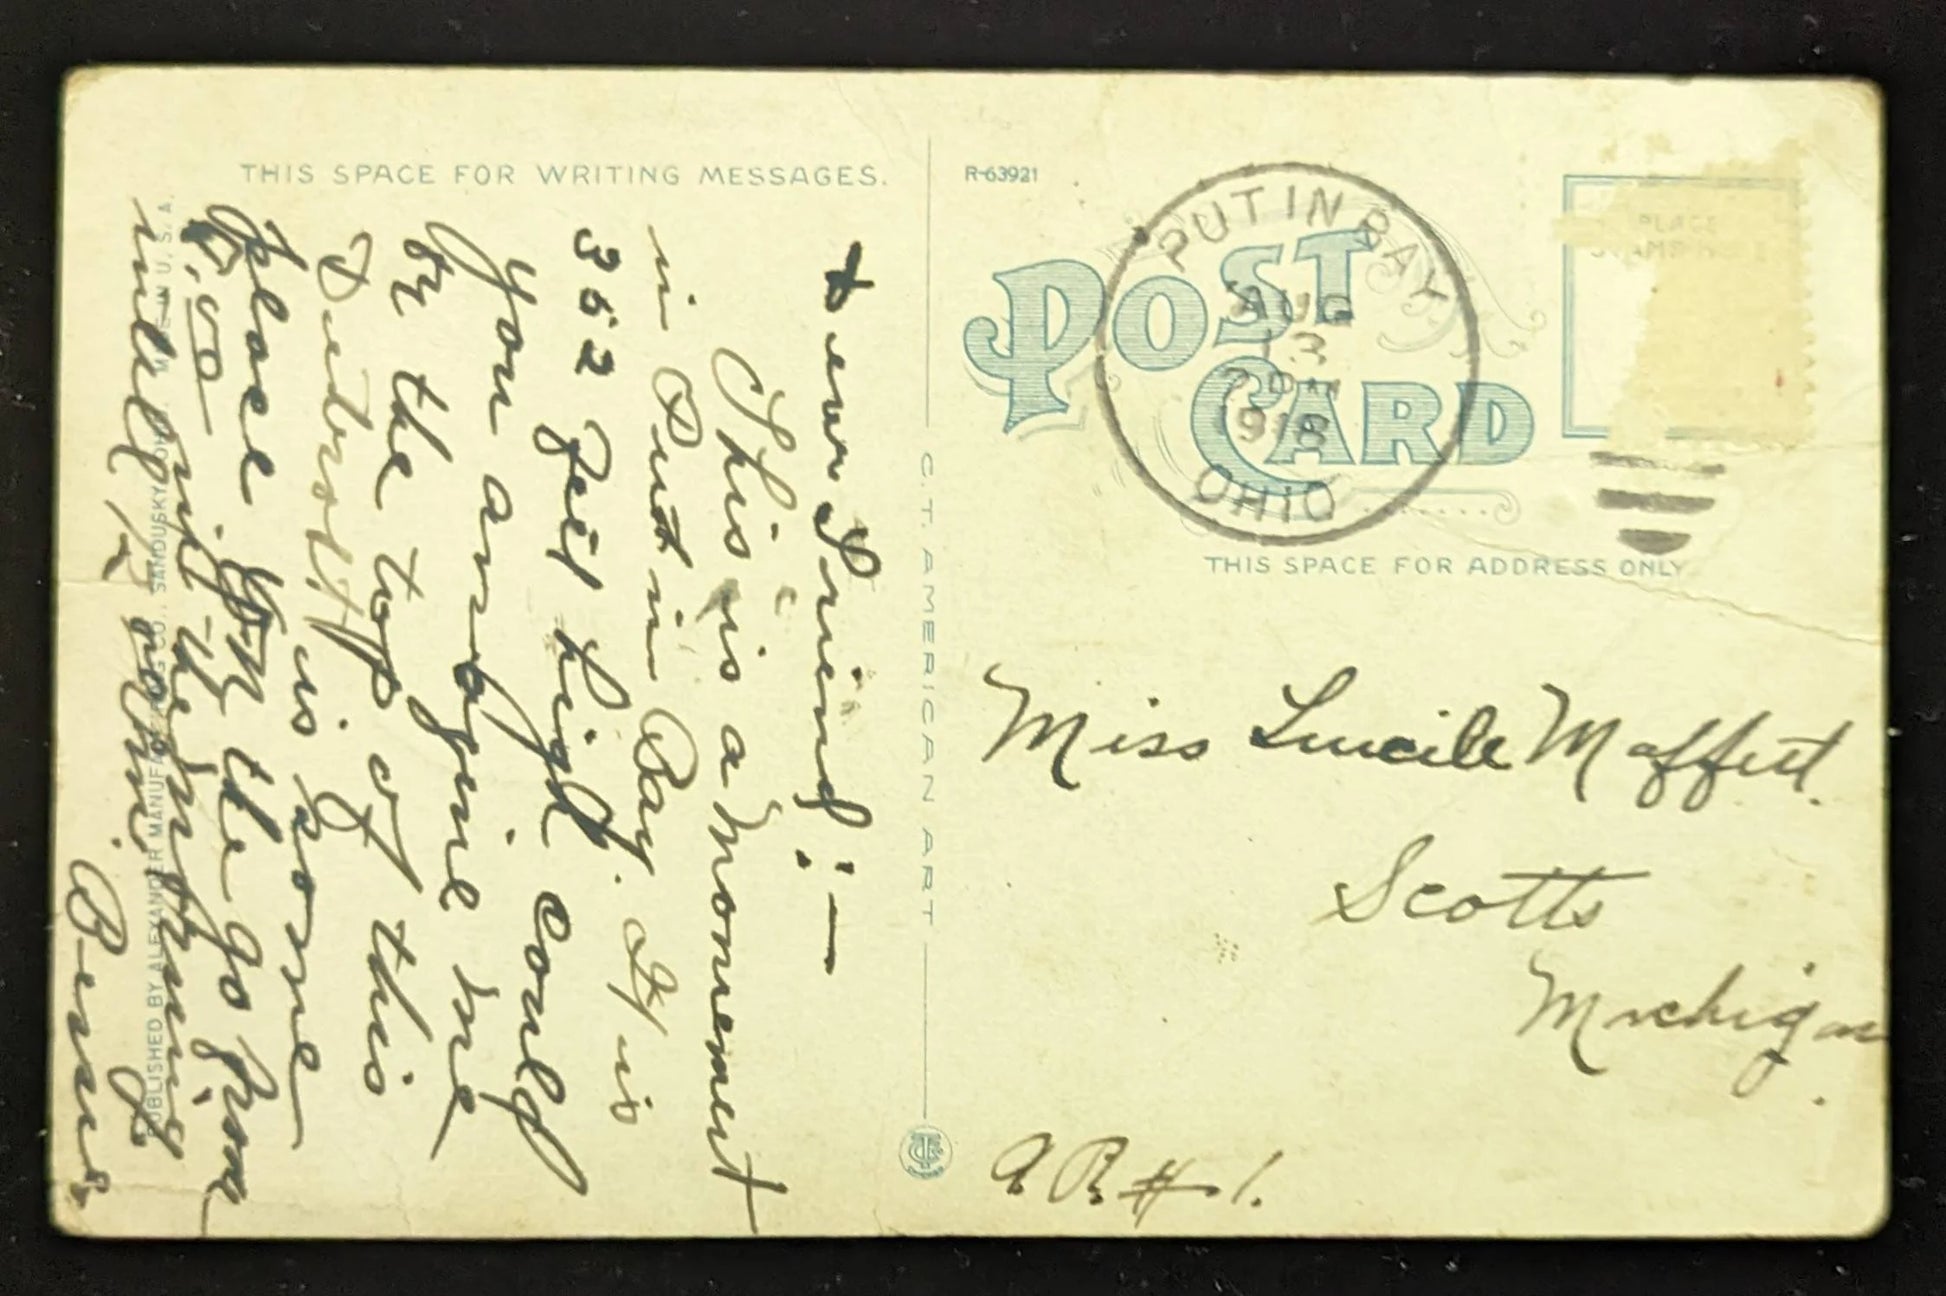 THIS SPACE FOR WRITING MESSAGES.
Dear Friend:—
This is a Monement
in Put in Bay. It is
352 feet high could
You amagine me
by the top of this
Detroit is some
place You the go from
will at
Bernice
PUBLISHED BY ALEXANDER MANUFACTURING CO., SANDUSKY, OHIO MADE IN U.S.A.
C. T. AMERICAN ART
R-63921
POST CARD
PUT IN BAY
AUG
13
7 PM
OHIO
PLACE
STAMP HERE
THIS SPACE FOR ADDRESS ONLY
Miss Lucile Moffett.
Scotts
Michigan.
R #1.